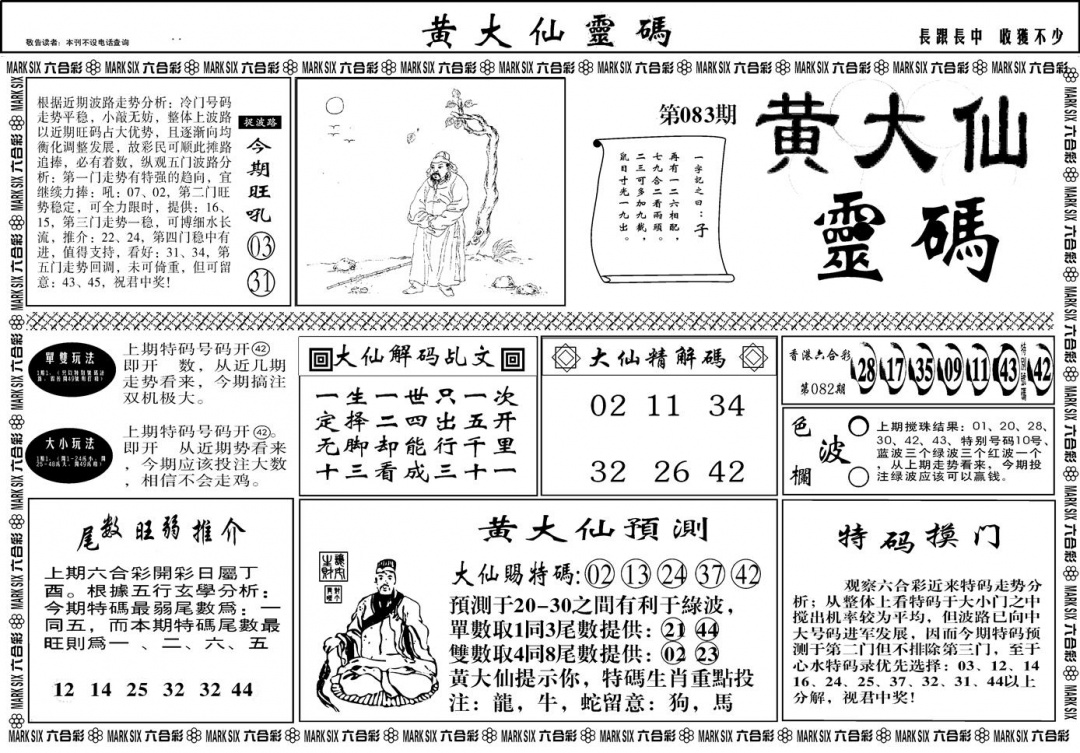 敬告读者：本刊不设电话查询
黄大仙靈碼
長跟長中 收獲不少
MARK SIX 六合彩 MARK SIX 六合彩 MARK SIX 六合彩 MARK SIX 六合彩 MARK SIX 六合彩 MARK SIX 六合彩 MARK SIX 六合彩 MARK SIX 六合彩 MARK SIX 六合彩 MARK SIX 六合彩 MARK SIX 六合彩
根据近期波路走势分析：冷门号码
走势平稳，小敲无妨，整体上波路
以近期旺码占大优势，且逐渐向均
衡化调整发展，故彩民可顺此摊路
追捧，必有着数，纵观五门波路分
析：第一门走势有特强的趋向，宜
继续力捧：吼：07、02，第二门旺
势稳定，可全力限时，提供：16、
15，第三门走势一稳，可博细水长
流，推介：22、24，第四门稳中有
进，值得支持，看好：31、34，第
五门走势回调，未可倚重，但可留
意：43、45，祝君中奖！
捉波路
今期旺吼
03
31
第083期
一字記之曰：子
再有一二六相配，
七九合二看兩頭。
二三可多加九截，
鼠目寸光一九出。
黄大仙
靈碼
單雙玩法
上期特码号码开㊷
即开 数，从近几期
走势看来，今期搞注
双机极大。
大小玩法
上期特码号码开㊷。
即开 从近期势看来
，今期应该投注大数
，相信不会走鸡。
大仙解码乩文
一生一世只一次
定择二四出五开
无脚却能行千里
十三看成三十一
大仙精解碼
02 11 34
32 26 42
香港六合彩
第082期
28 17 35 09 11 43 特别號碼 42
色波欄
上期搅珠结果：01、20、28、
30、42、43、特别号码10号、
蓝波三个绿波三个红波一个
，从上期走势看来，今期投
注绿波应该可以赢钱。
尾数旺弱推介
上期六合彩開彩日屬丁
酉。根據五行玄學分析：
今期特碼最弱尾數爲：一
同五，而本期特碼尾數最
旺則爲一 、二、六、五
12 14 25 32 32 44
黄大仙預測
大仙賜特碼：02 13 24 37 42
預測于20-30之間有利于綠波，
單數取1同3尾數提供：21 44
雙數取4同8尾數提供：02 23
黄大仙提示你，特碼生肖重點投
注：龍，牛，蛇留意：狗，馬
特码摸门
观察六合彩近来特码走势分
析；从整体上看特码于大小门之中
搅出机率较为平均，但波路已向中
大号码进军发展，因而今期特码预
测于第二门但不排除第三门，至于
心水特码录优先选择：03、12、14
16、24、25、37、32、31、44以上
分解，祝君中奖！
MARK SIX 六合彩 MARK SIX 六合彩 MARK SIX 六合彩 MARK SIX 六合彩 MARK SIX 六合彩 MARK SIX 六合彩 MARK SIX 六合彩 MARK SIX 六合彩 MARK SIX 六合彩 MARK SIX 六合彩 MARK SIX 六合彩